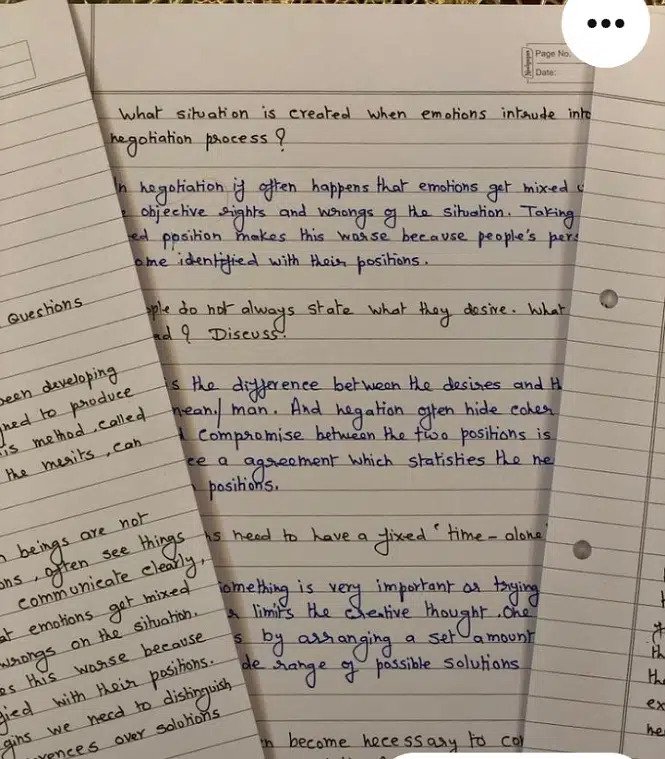 Page No.
Date:
What situation is created when emotions intrude into
negotiation process ?
In negotiation if often happens that emotions get mixed
objective rights and wrongs of the situation. Taking
ed position makes this worse because people's pers
ome identified with their positions.
ople do not always state what they desire. What
ad ? Discuss.
s the difference between the desires and th
mean/ man. And negation often hide coher
compromise between the two positions is
ce a agreement which statisties the ne
positions.
ns need to have a fixed "time-alone
omething is very important as trying
limits the creative thought. One
s by arranging a set amount
de range of possible solutions
n become necessary to con
Questions
been developing
ned to produce
is method, called
the merits, can
n beings are not
ons, often see things
communicate clearly,
at emotions get mixed
wrongs on the situation.
es this worse because
fied with their positions.
gins we need to distinguish
rences over solutions
th
the
ex
he